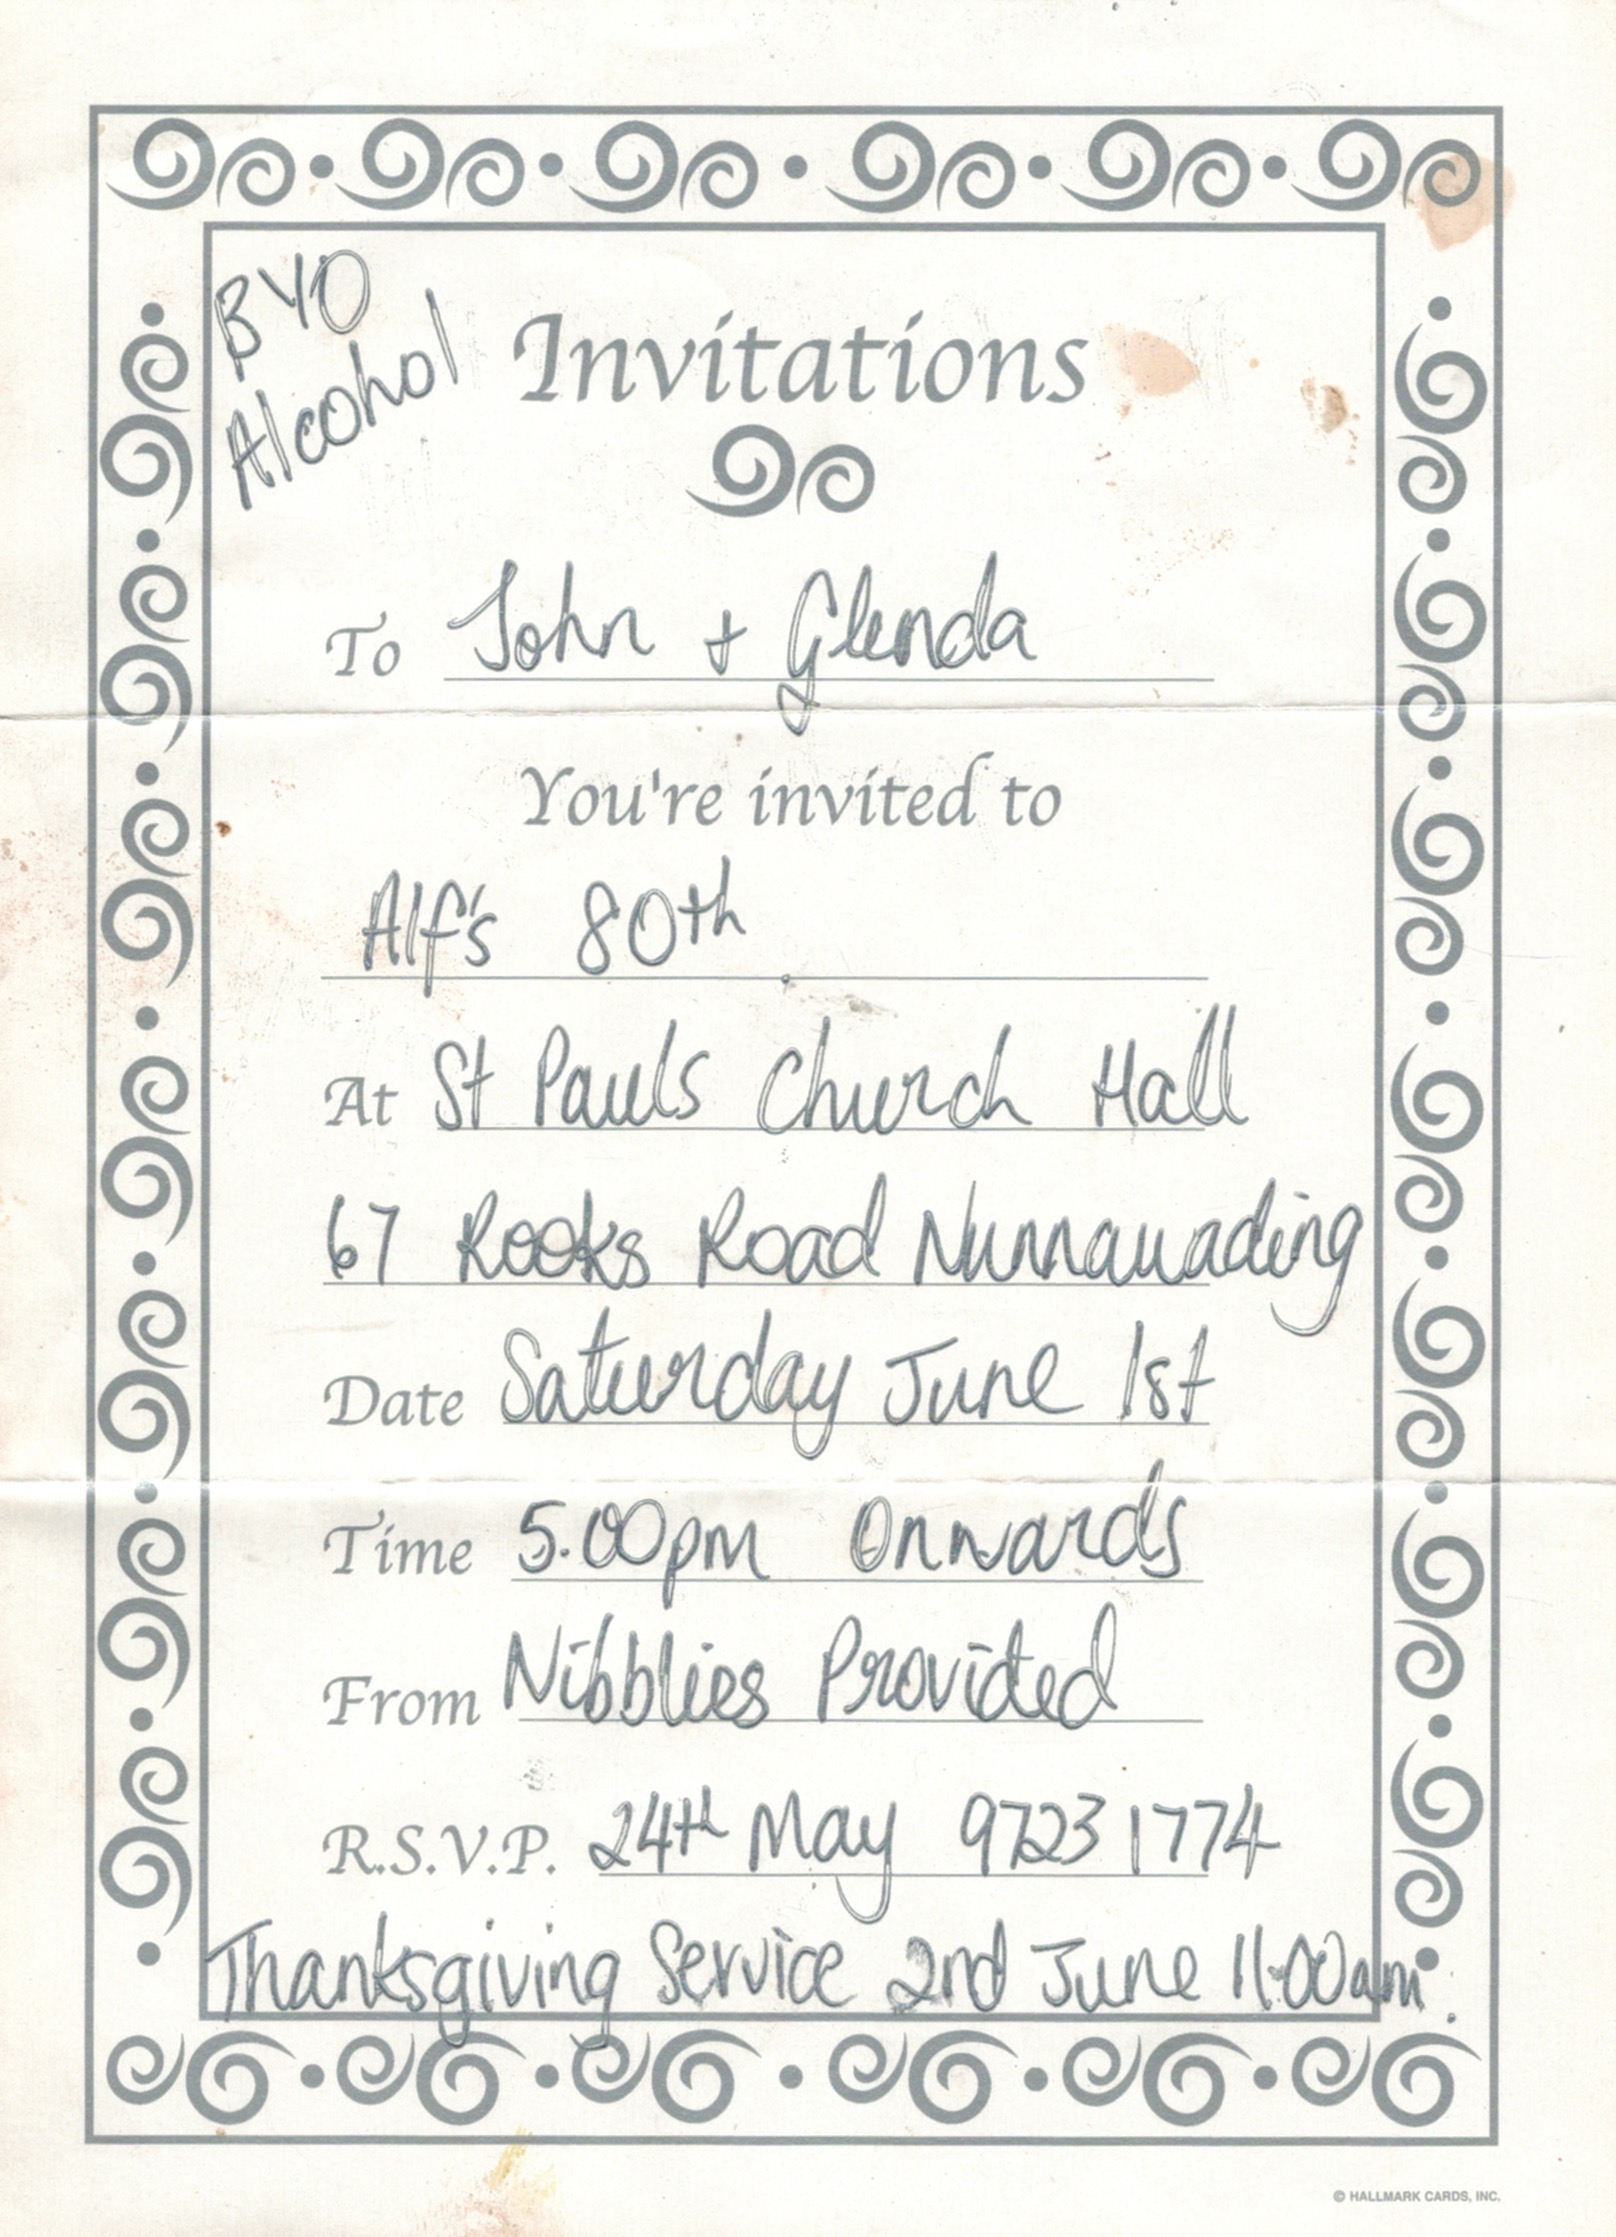 BYO
Alcohol
Invitations
To John + Glenda
You're invited to
Alf's 80th
At St Pauls Church Hall
67 Rooks Road Nunnawading
Date Saturday June 1st
Time 5.00pm Onwards
From Nibblies Provided
R.S.V.P. 24th May 9723 1774
Thanksgiving Service 2nd June 11.00am.
© HALLMARK CARDS, INC.